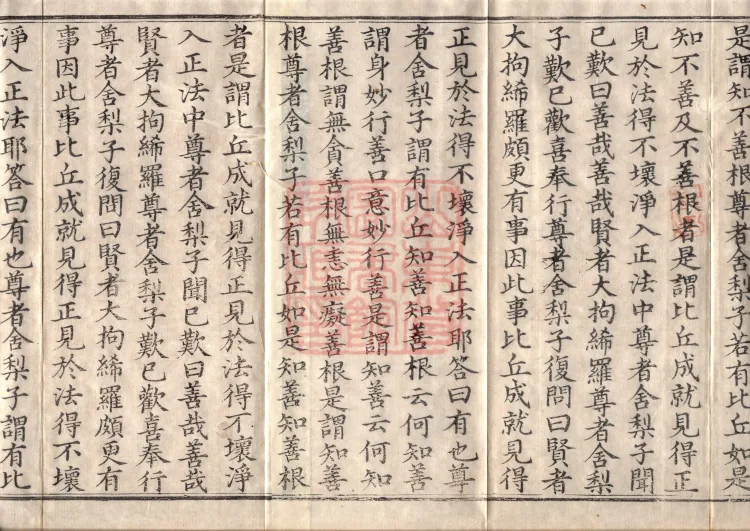 是謂知不善根尊者舍梨子若有比丘如是
知不善及不善根者是謂比丘成就見得正
見於法得不壞淨入正法中尊者舍梨子聞
已歎曰善哉善哉賢者大拘絺羅尊者舍梨
子歎已歡喜奉行尊者舍梨子復問曰賢者
大拘絺羅頗更有事因此事比丘成就見得
正見於法得不壞淨入正法耶答曰有也尊
者舍梨子謂有比丘知善知善根云何知善
謂身妙行善口意妙行善是謂知善云何知
善根謂無貪善根無恚無癡善根是謂知善
根尊者舍梨子若有比丘如是知善知善根
者是謂比丘成就見得正見於法得不壞淨
入正法中尊者舍梨子聞已歎曰善哉善哉
賢者大拘絺羅尊者舍梨子歎已歡喜奉行
尊者舍梨子復問曰賢者大拘絺羅頗更有
事因此事比丘成就見得正見於法得不壞
淨入正法耶答曰有也尊者舍梨子謂有比